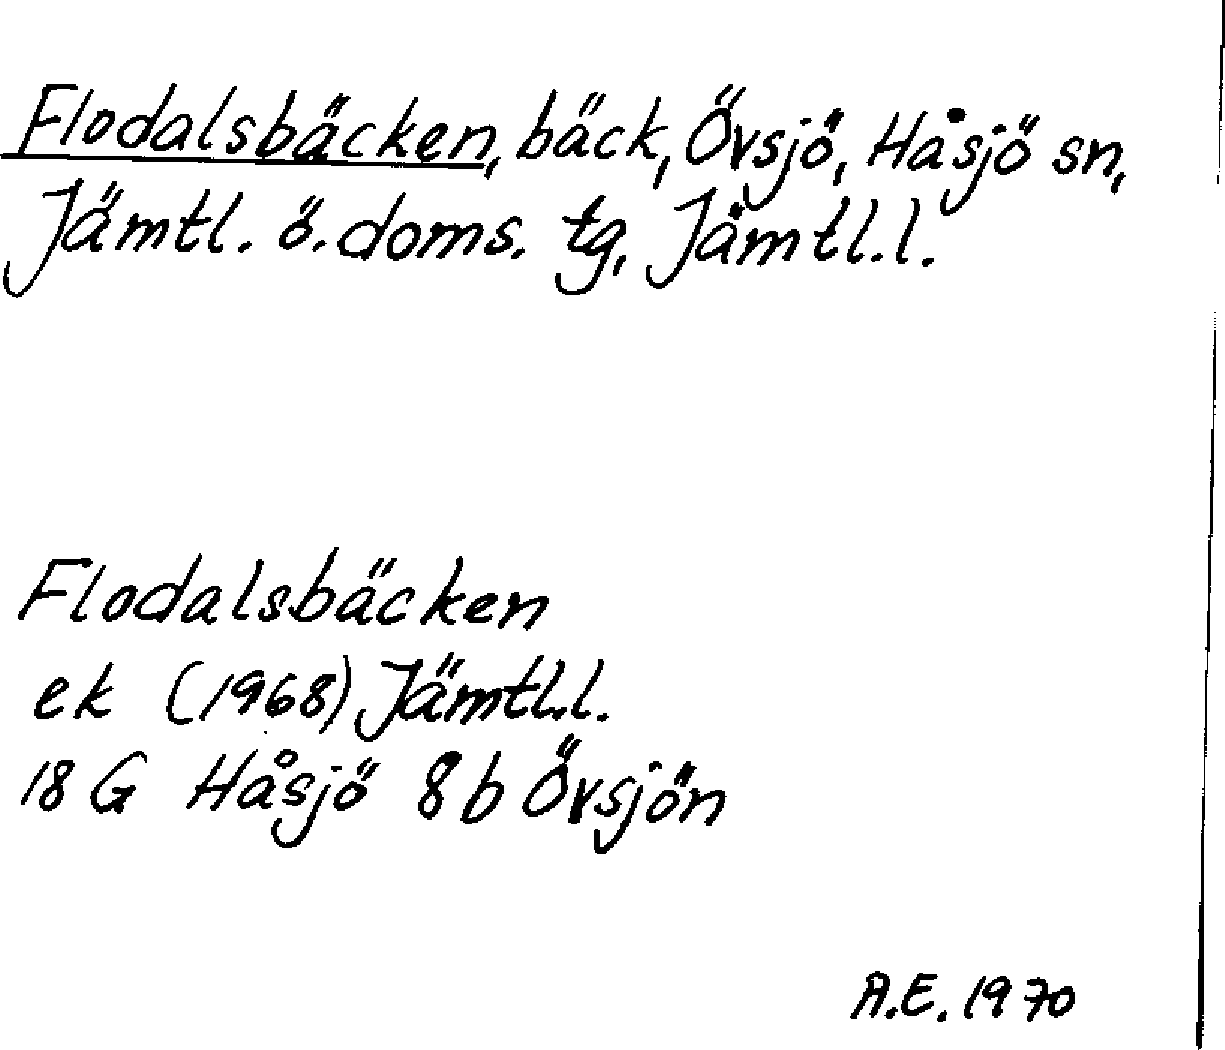 Flodalsbäcken, bäck, Övsjö, Håsjö sn,
Jämtl. ö. doms. tg, Jämtl. l.
Flodalsbäcken
ek (1968) Jämtl. l.
18 G Håsjö 8b Övsjön
A.E. 1970